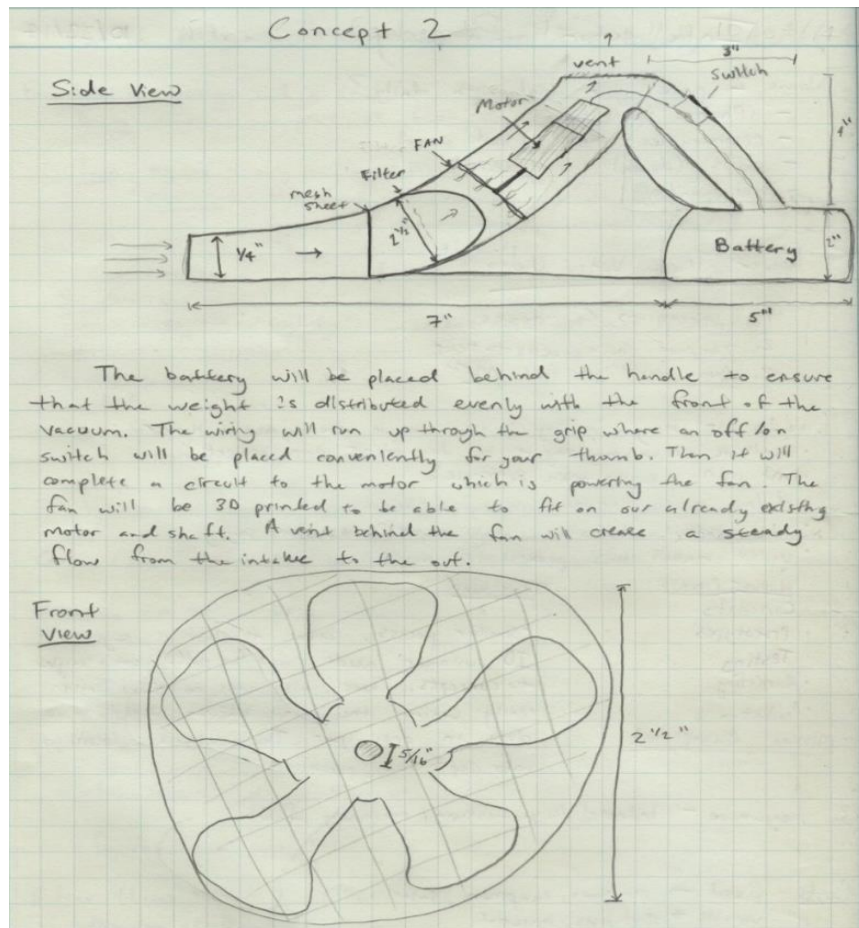 Concept 2
Side View
vent
3"
switch
Motor
4"
FAN
Filter
mesh
sheet
2 1/2"
1/4"
Battery
2"
7"
5"
The battery will be placed behind the handle to ensure
that the weight is distributed evenly with the front of the
vacuum. The wiring will run up through the grip where an off/on
switch will be placed conveniently for your thumb. Then it will
complete a circuit to the motor which is powering the fan. The
fan will be 3D printed to be able to fit on our already existing
motor and shaft. A vent behind the fan will create a steady
flow from the intake to the out.
Front
View
5/16"
2 1/2"